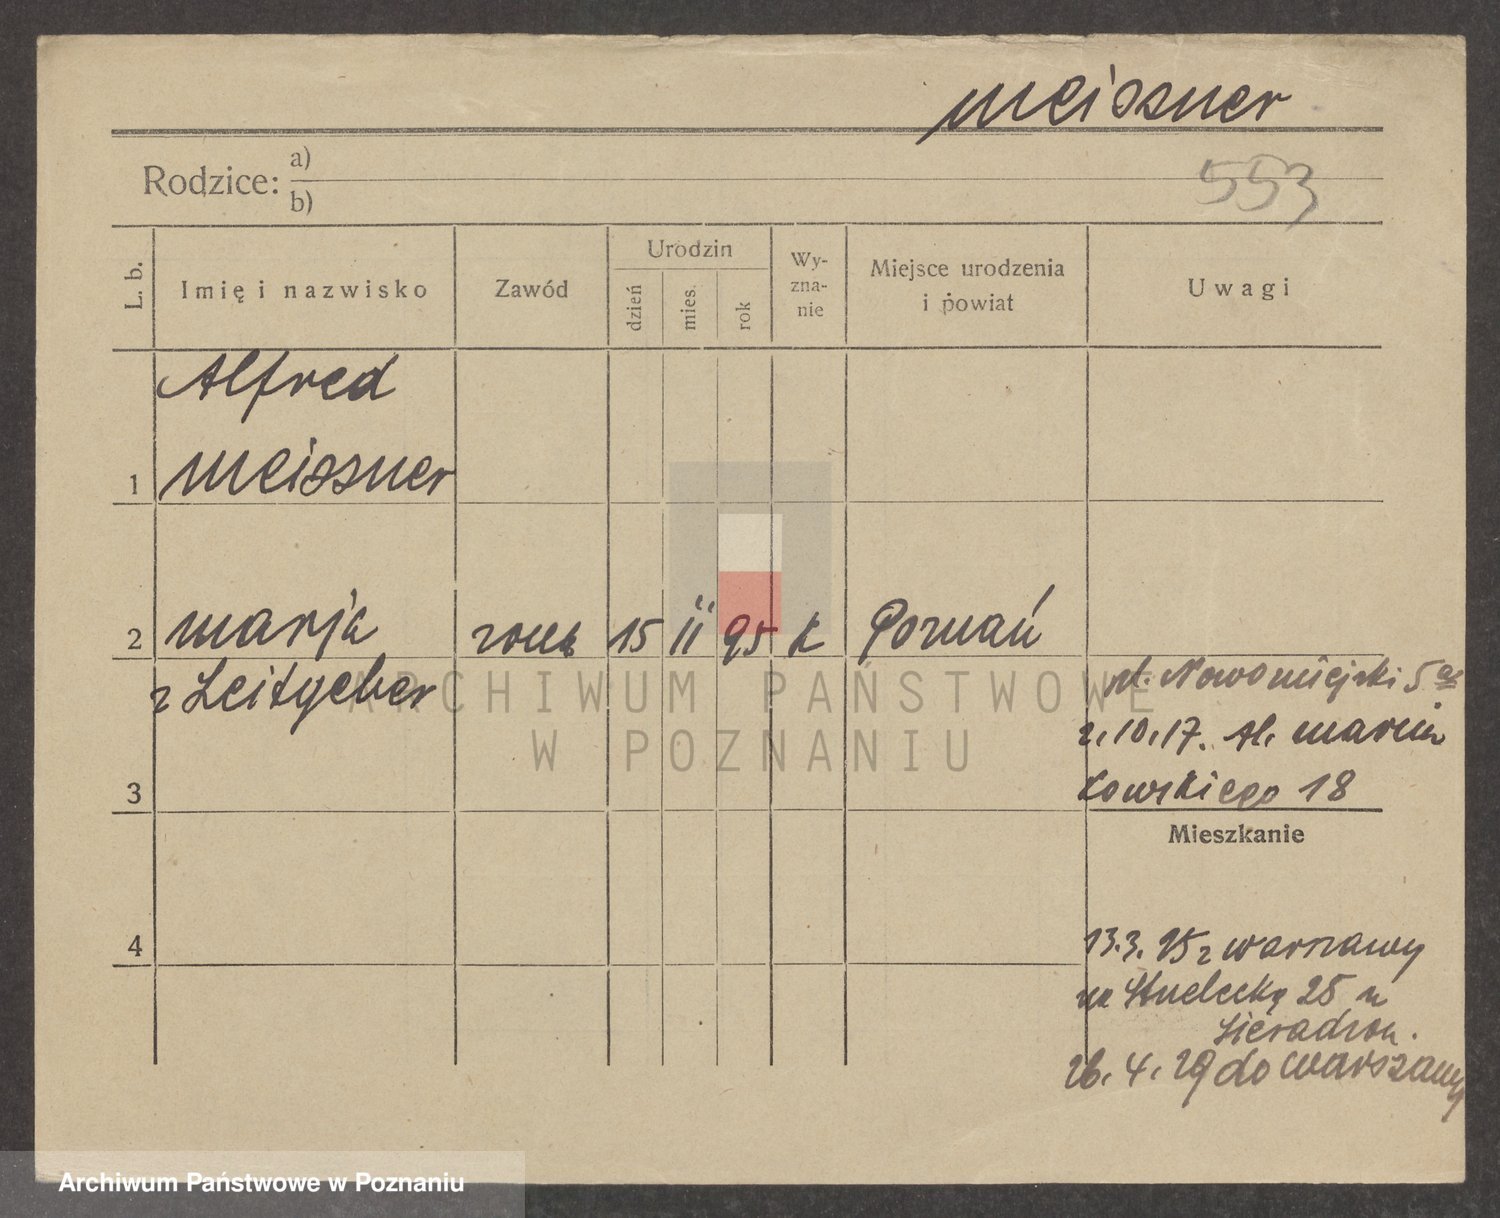 Meissner
Rodzice: a)
b)
553
L. b.
Imię i nazwisko
Zawód
Urodzin
dzień
mies.
rok
Wy-
zna-
nie
Miejsce urodzenia
i powiat
Uwagi
Alfred
1 Meissner
2 Marja 15 II 95 k Poznań
z Leitgeber
pl. Nowomiejski 5
10.17. Al. Marcin
kowskiego 18
3
Mieszkanie
4
13.3. 25 z Warszawy
na Strzelecką 25 u
26. 4. 29 do Warszawy
ARCHIWUM PAŃSTWOWE
W POZNANIU
Archiwum Państwowe w Poznaniu